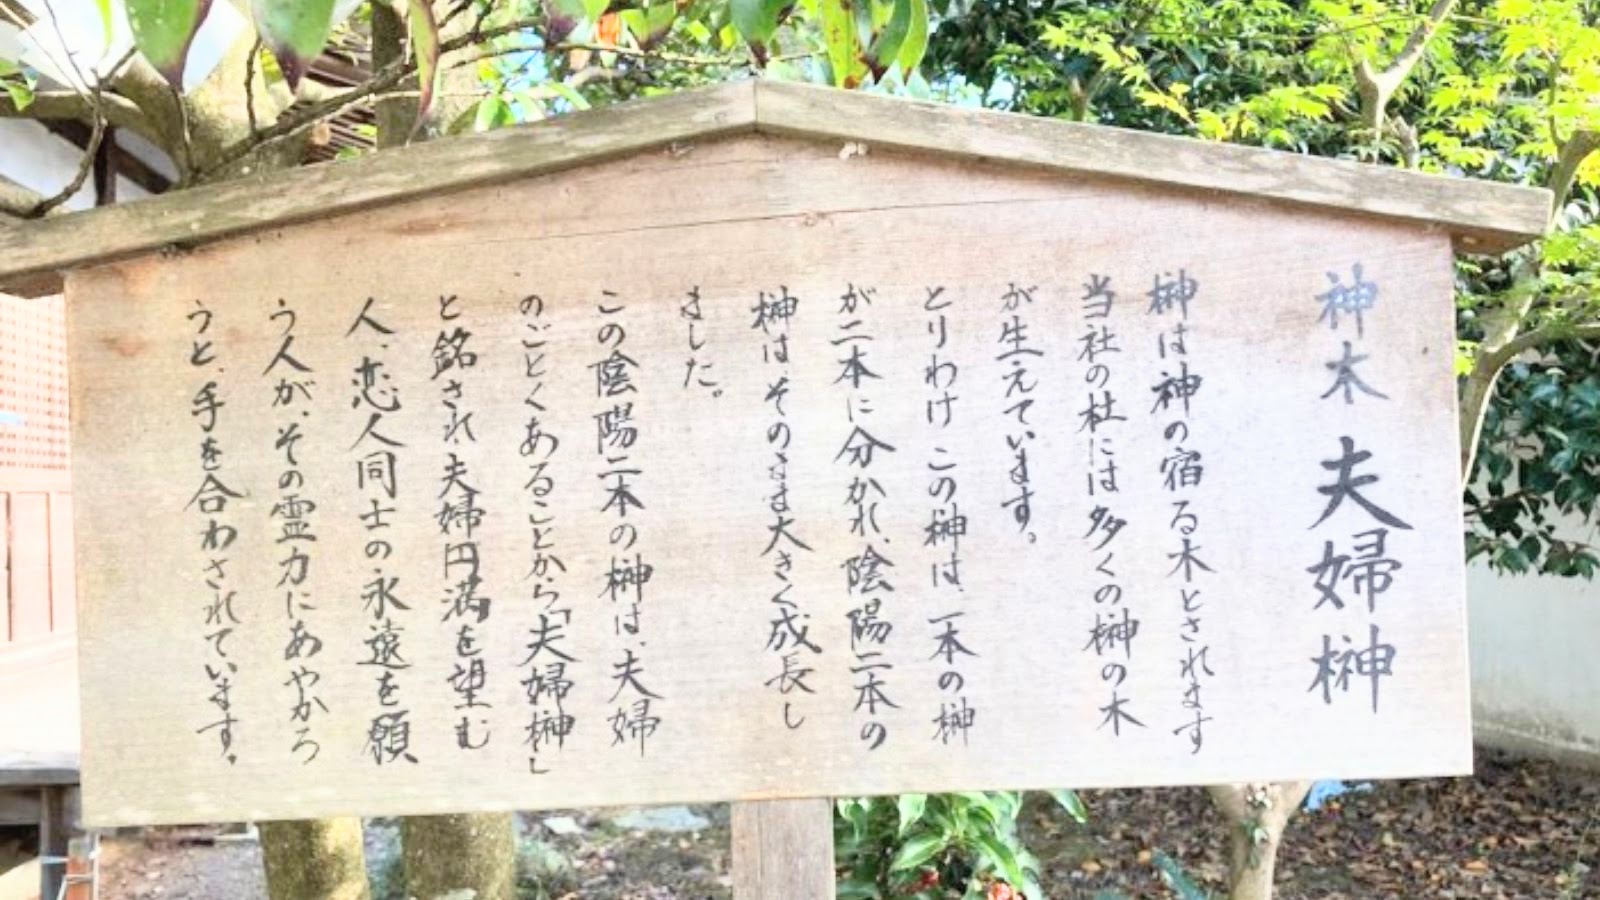 神木 夫婦榊
榊は神の宿る木とされます
当社の杜には多くの榊の木
が生えています。
とりわけ この榊は、一本の榊
が二本に分かれ、陰陽二本の
榊は、そのまま大きく成長し
ました。
この陰陽二本の榊は、夫婦
のごとくあることから「夫婦榊」
と銘され夫婦円満を望む
人、恋人同士の永遠を願
う人が、その霊力にあやかろ
うと、手を合わされています。